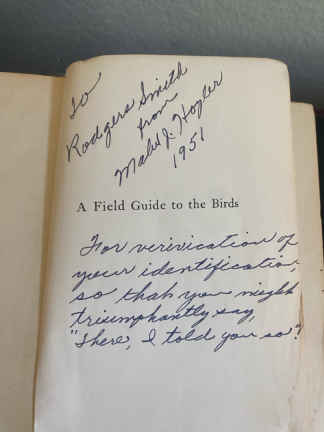 To
Rodgers Smith
from
Mabel J. Hogler
1951
A Field Guide to the Birds
For verivication of
your identification,
so thah you might
triumphantly say,
"There, I told you so"!